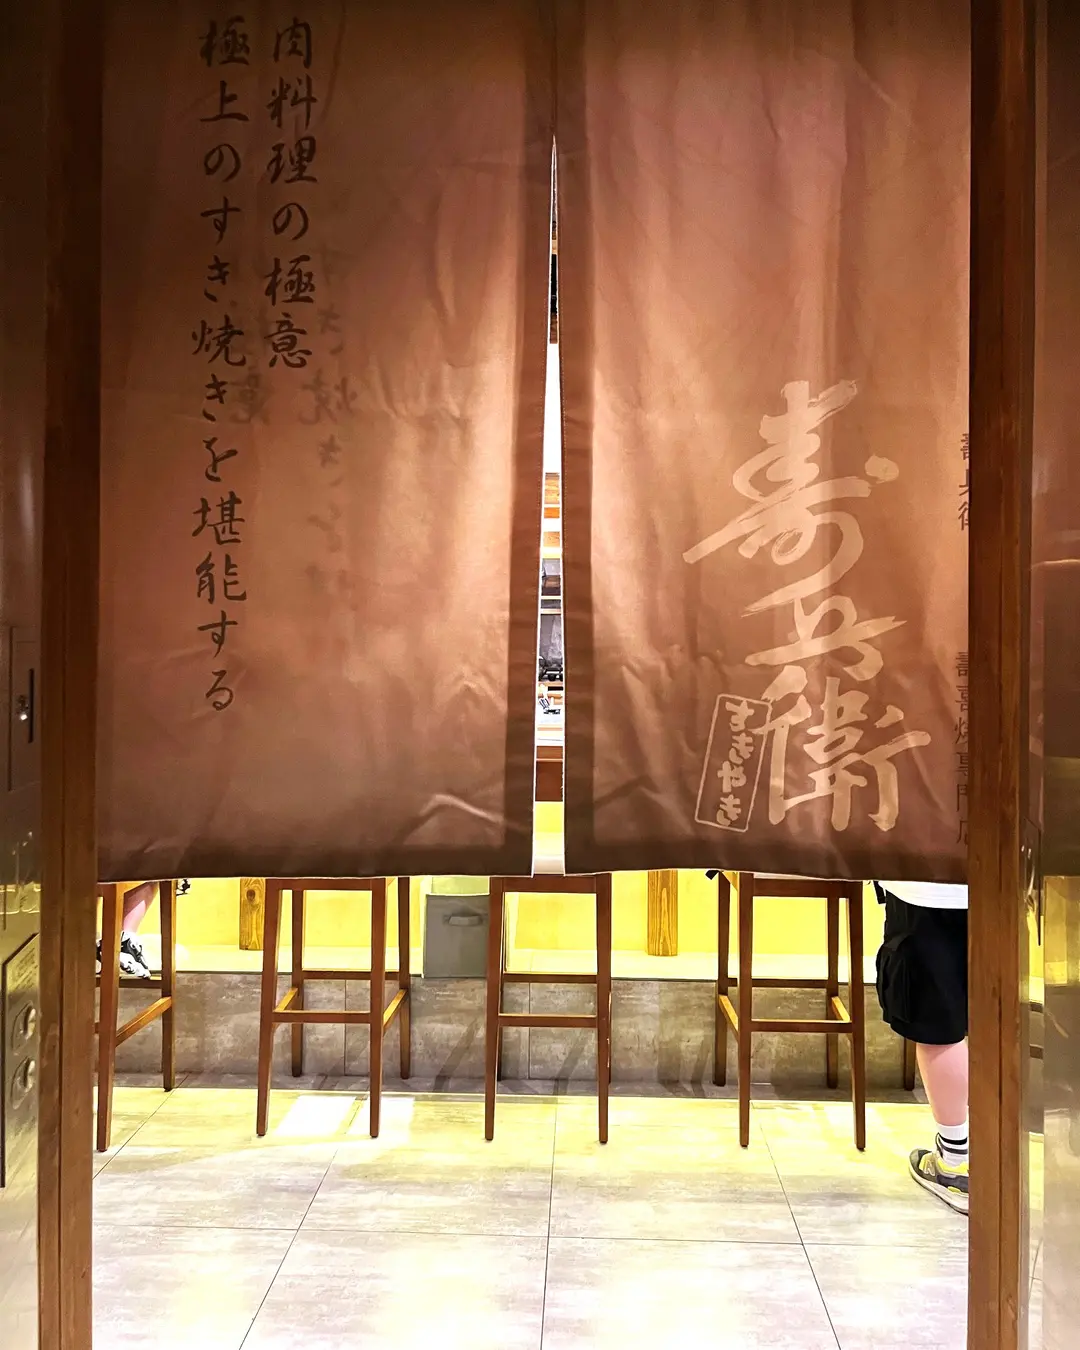 肉料理の極意
極上のすき焼きを堪能する
寿兵衛
すきやき
壽兵衛
壽喜燒專門店